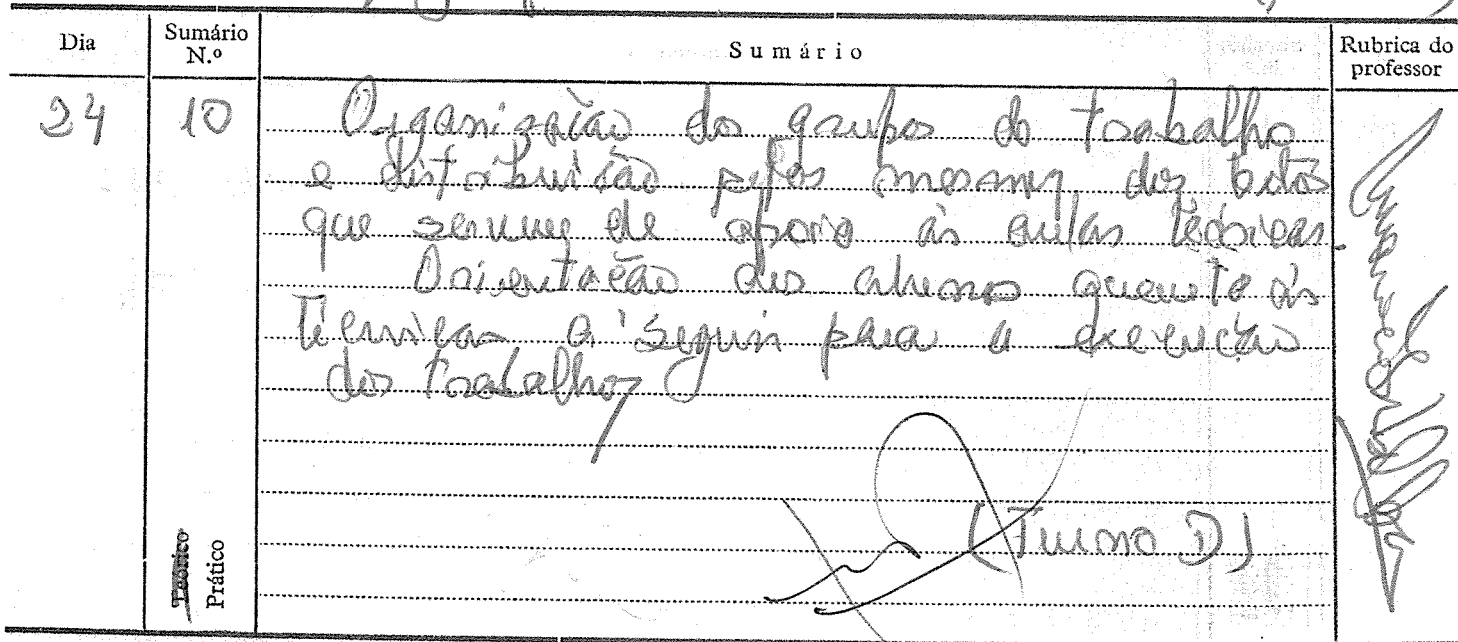 Dia
Sumário N.º
Sumário
Rubrica do professor
24
10
Organização dos grupos de trabalho
e distribuição pelos mesmos dos textos
que servem de apoio às aulas teóricas.
Orientação dos alunos quanto às
técnicas a seguir para a execução
dos trabalhos
(Turno D)
Teórico
Prático